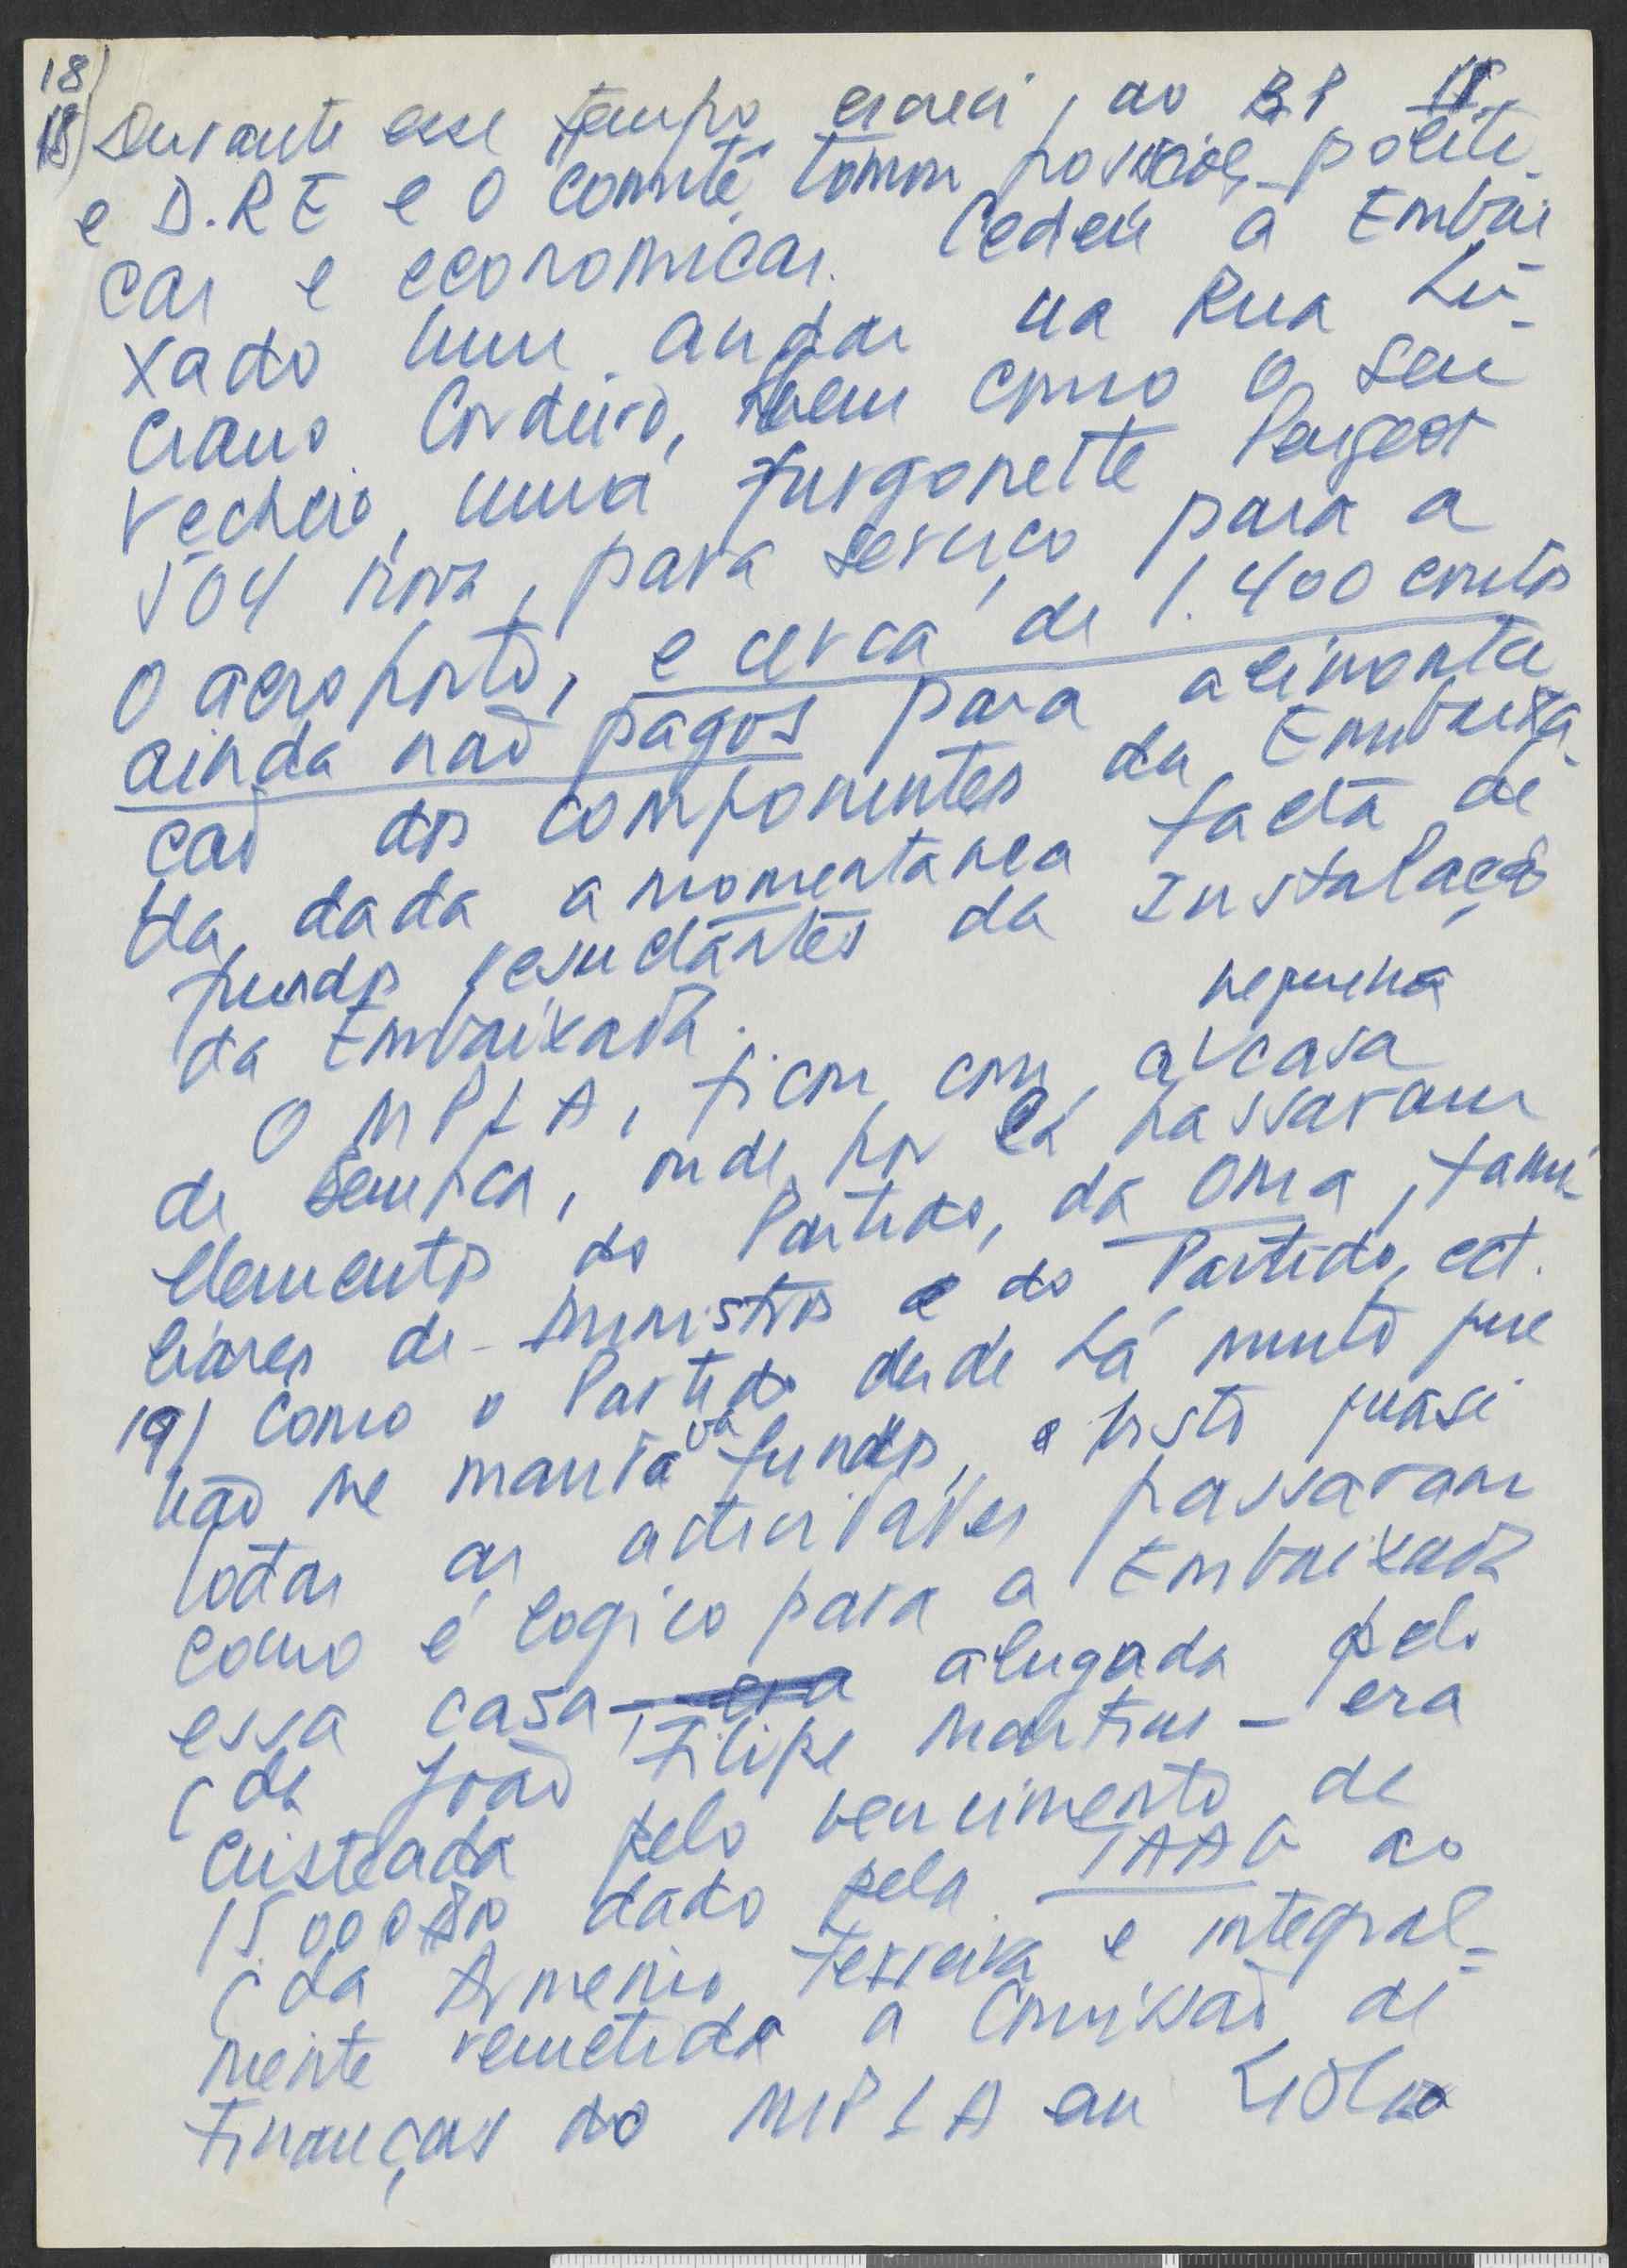 18)
18) Durante esse tempo, escrevi, ao BP
e D.RE e o "comité" tomou posições politi-
cas e economicas. Cedeu a Embai
xada um andar na Rua Lu-
ciano Cordeiro, bem como o seu
recheio, uma furgonette Peugeot
504 nova, para serviço para a
o aeroporto, e cerca de 1.400 contos
ainda não pagos para alimenta
ção dos componentes da Embaixa-
da, dada a momentanea falta de
fundos resultantes da Instalação
da Embaixada.
pequena
O MPLA, ficou com a casa
de Benfica, onde por lá passaram
elementos do Partido, da OMA, fami-
liares de ministros e do Partido, ect.
19) Como o Partido desde há muito que
não me manda va fundos, e visto quasi
todas as actividades passaram
como é logico para a Embaixada
essa casa - era alugada pelo
Cda João Filipe Martins - era
custeada pelo vencimento de
15.000$00 dado pela TAAG ao
Cda Armenio Ferreira e integral-
mente remetida a Comissão de
Finanças do MPLA em Lisboa